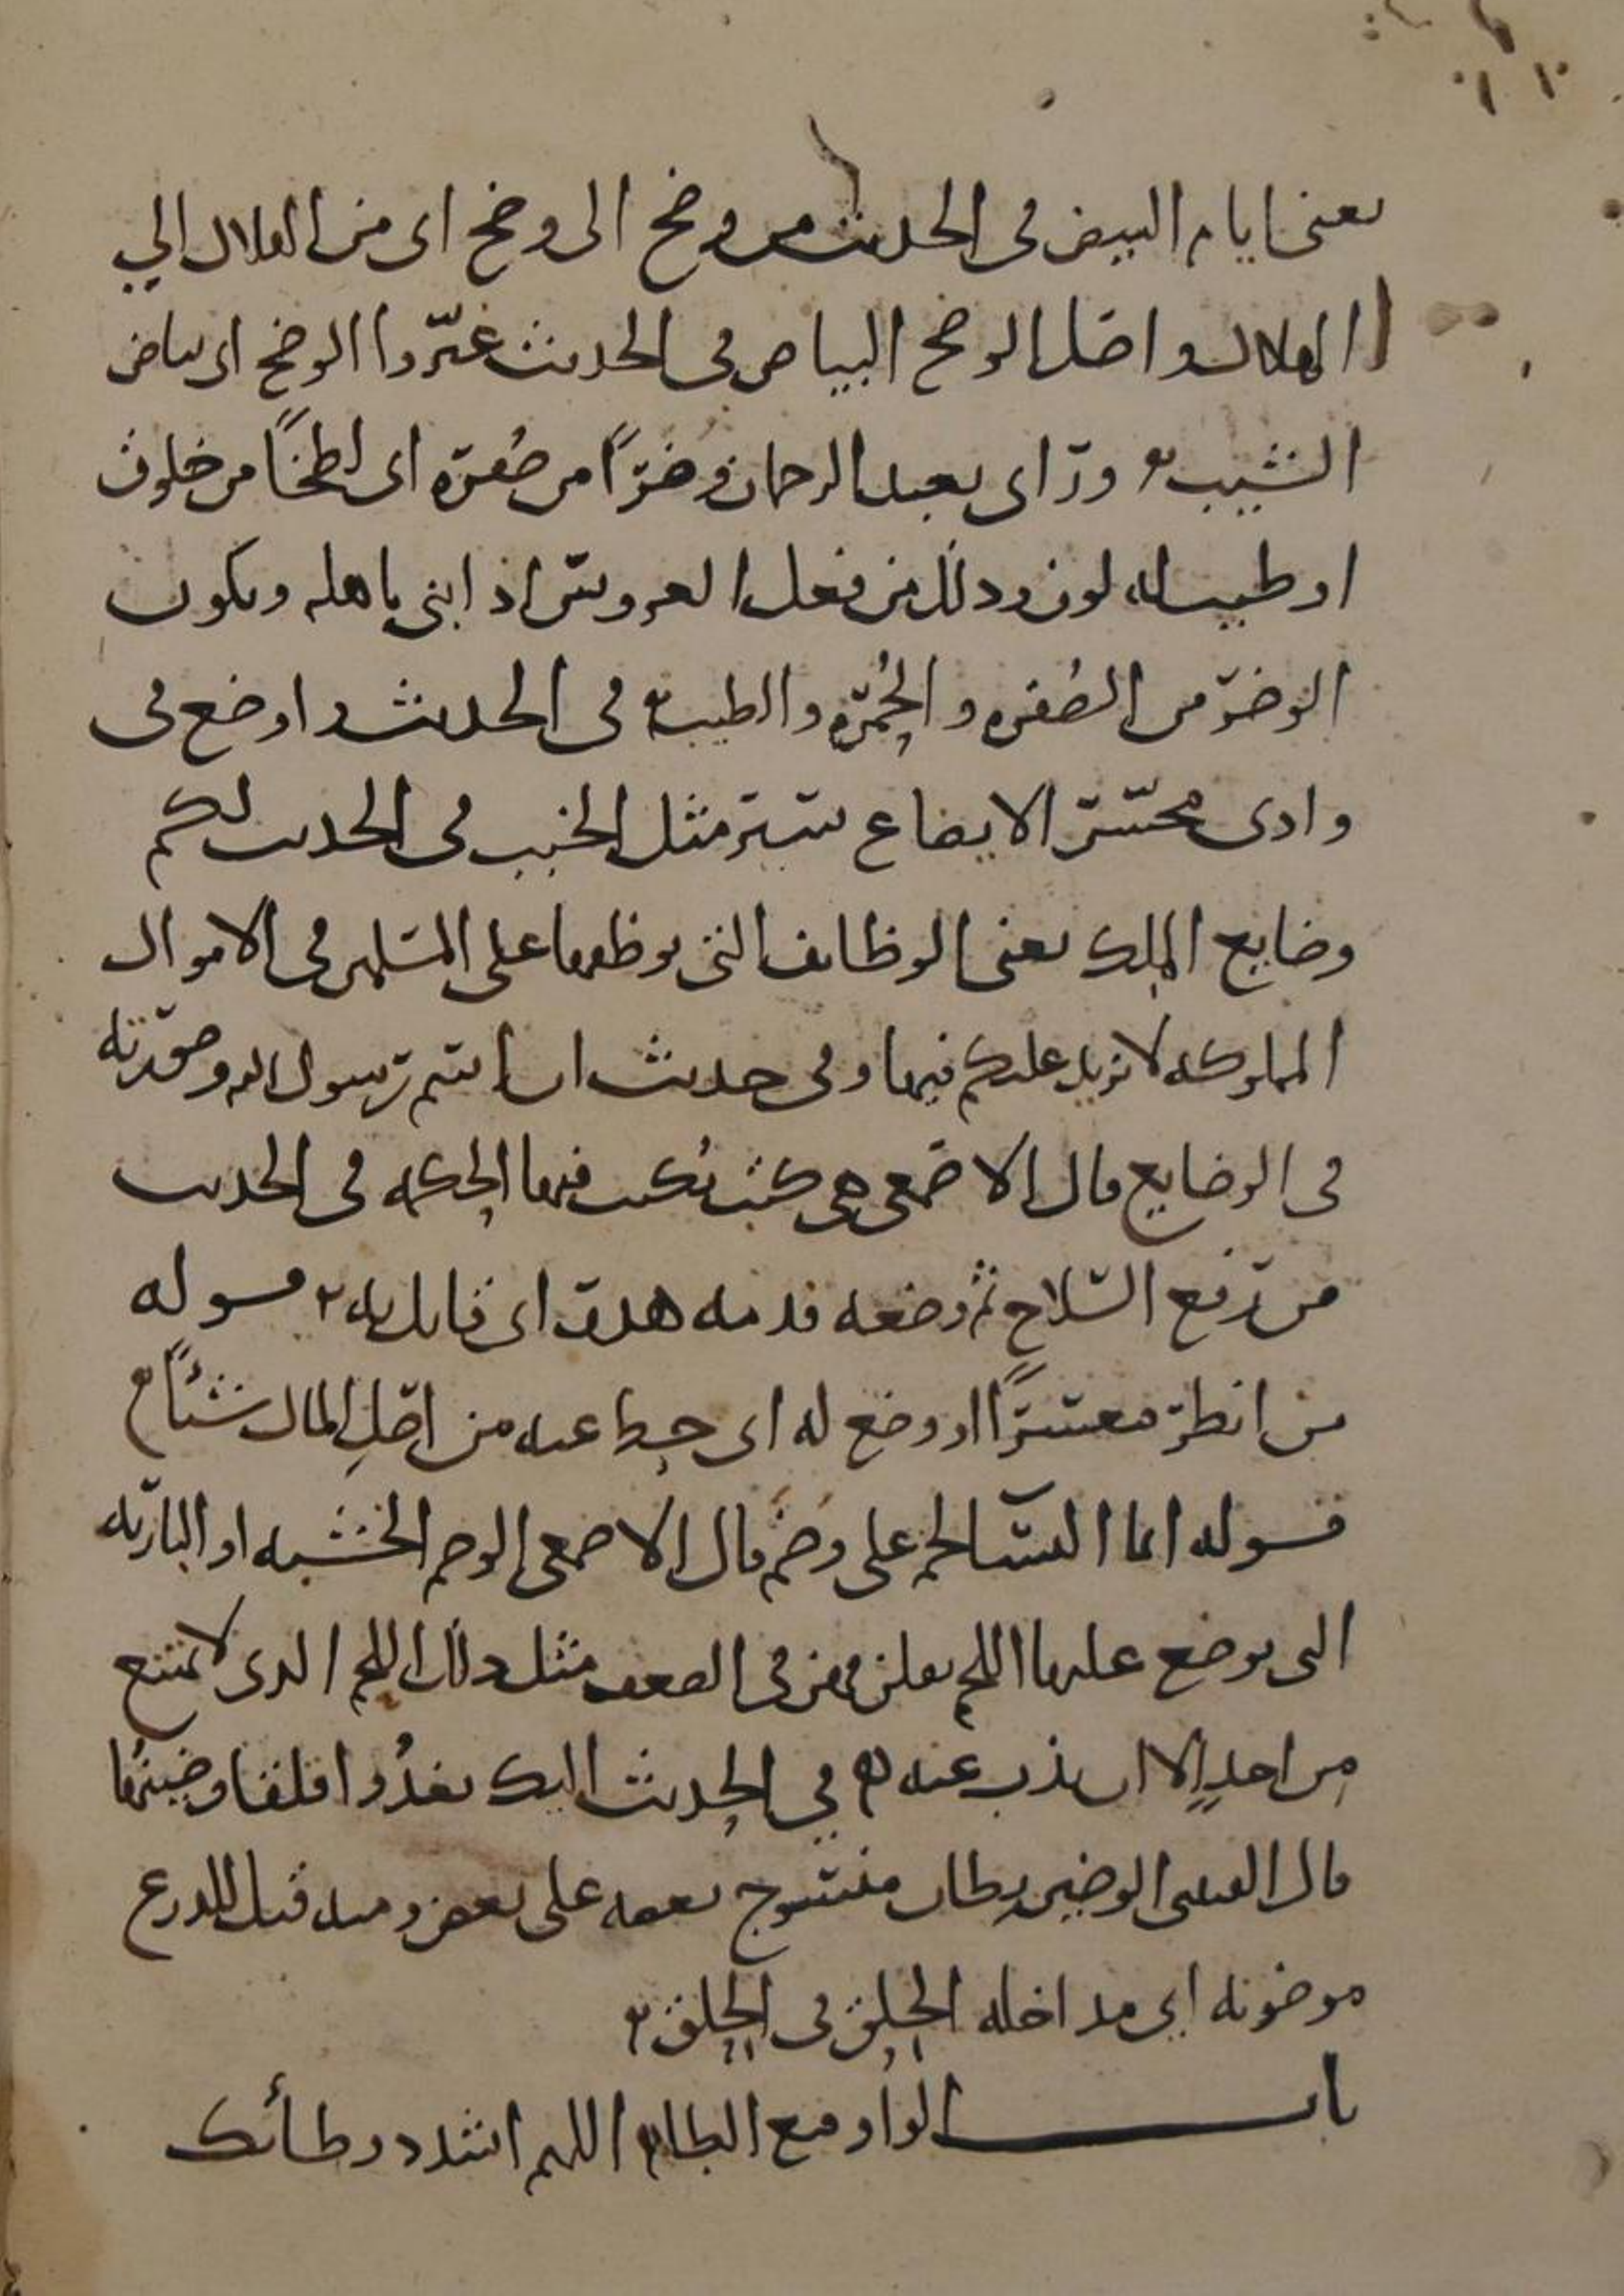 يعنى ايام البيض فى الحديث من وضح الى وضح اى من الهلال الي
الهلال واصل الوضح البياض فى الحديث غيّروا الوضح اى بياض
الشيب وراى بعبد الرحمان وضرًا من صُفرة اى لطخًا من خلوق
او طيب له لون وذلك من فعل العروس اذا بنى باهله ويكون
الوضر من الصُفرة والحُمرة والطيب فى الحديث واوضع فى
وادى محسّر الايضاع سير مثل الخبب فى الحديث لكم
وضايع الملك يعنى الوظايف التى يوظفها على المسلمين فى الاموال
المملوكة لا نزيد عليكم فيها وفى حديث ان اسم رسول الله وصورته
فى الوضايع قال الاصمعى هى كتب تُكتب فيها الحكمة فى الحديث
من رفع السلاح ثم وضعه فدمه هدر اى قاتل به قوله
من انظر معسرًا او وضع له اى حط عنه من اصلِ المال شئًا
قوله انما النسا لحم على وضم قال الاصمعى الوضم الخشبة او البارية
التى يوضع عليها اللحم يقلن فهن فى الضعف مثل ذلك اللحم الذى لا يمتنع
من احدٍ الا ان يذب عنه في الحديث اليك تغدُوا قلقا وضينُها
قال القتبى الوضين بطان منسوج بعضه على بعض ومنه قيل للدرع
موضونة اى مداخلة الحلق فى الحلق
باب الواو مع الطاء اللهم اشدد وطأتك